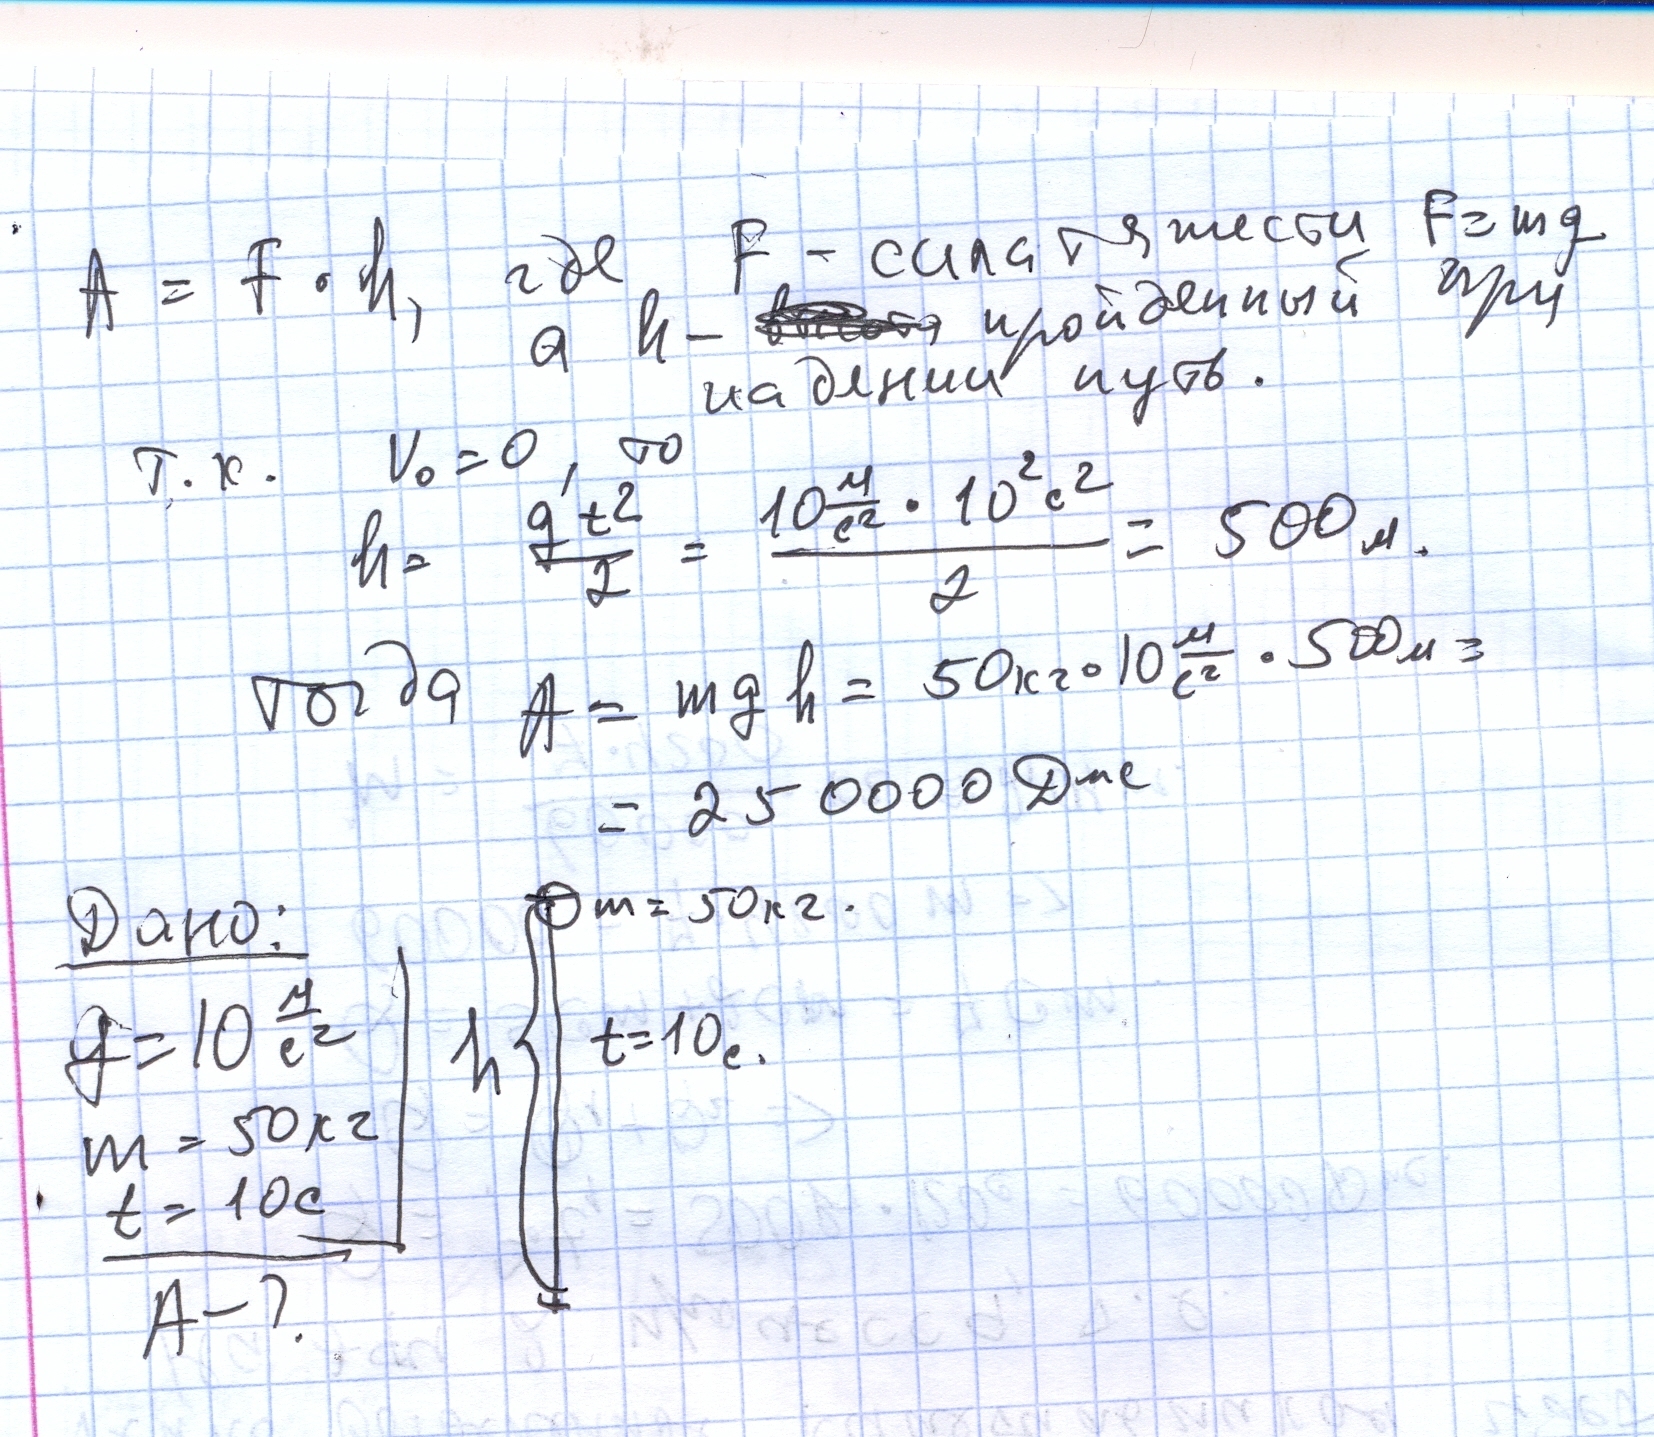 A = F · h, где F – сила тяжести F = mg
а h – пройденный при
падении путь.
Т.к. V₀ = 0, то
h = gt²/2 = (10 м/с² · 10² с²)/2 = 500 м.
тогда A = mgh = 50 кг · 10 м/с² · 500 м =
= 250000 Дж
Дано:
g = 10 м/с²
m = 50 кг
t = 10 с
A – ?
m = 50 кг.
h
t = 10 с.